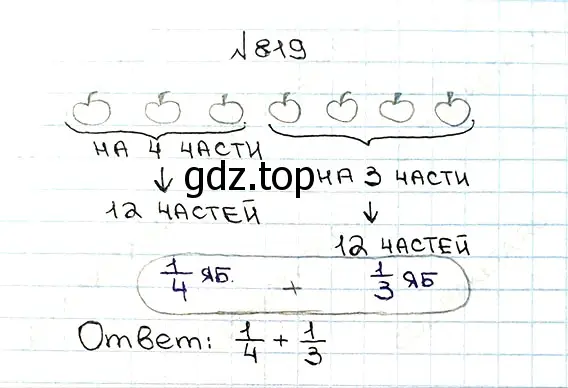 №819
на 4 части
на 3 части
gdz.top
12 частей
12 частей
1/4 яб. + 1/3 яб
Ответ: 1/4 + 1/3